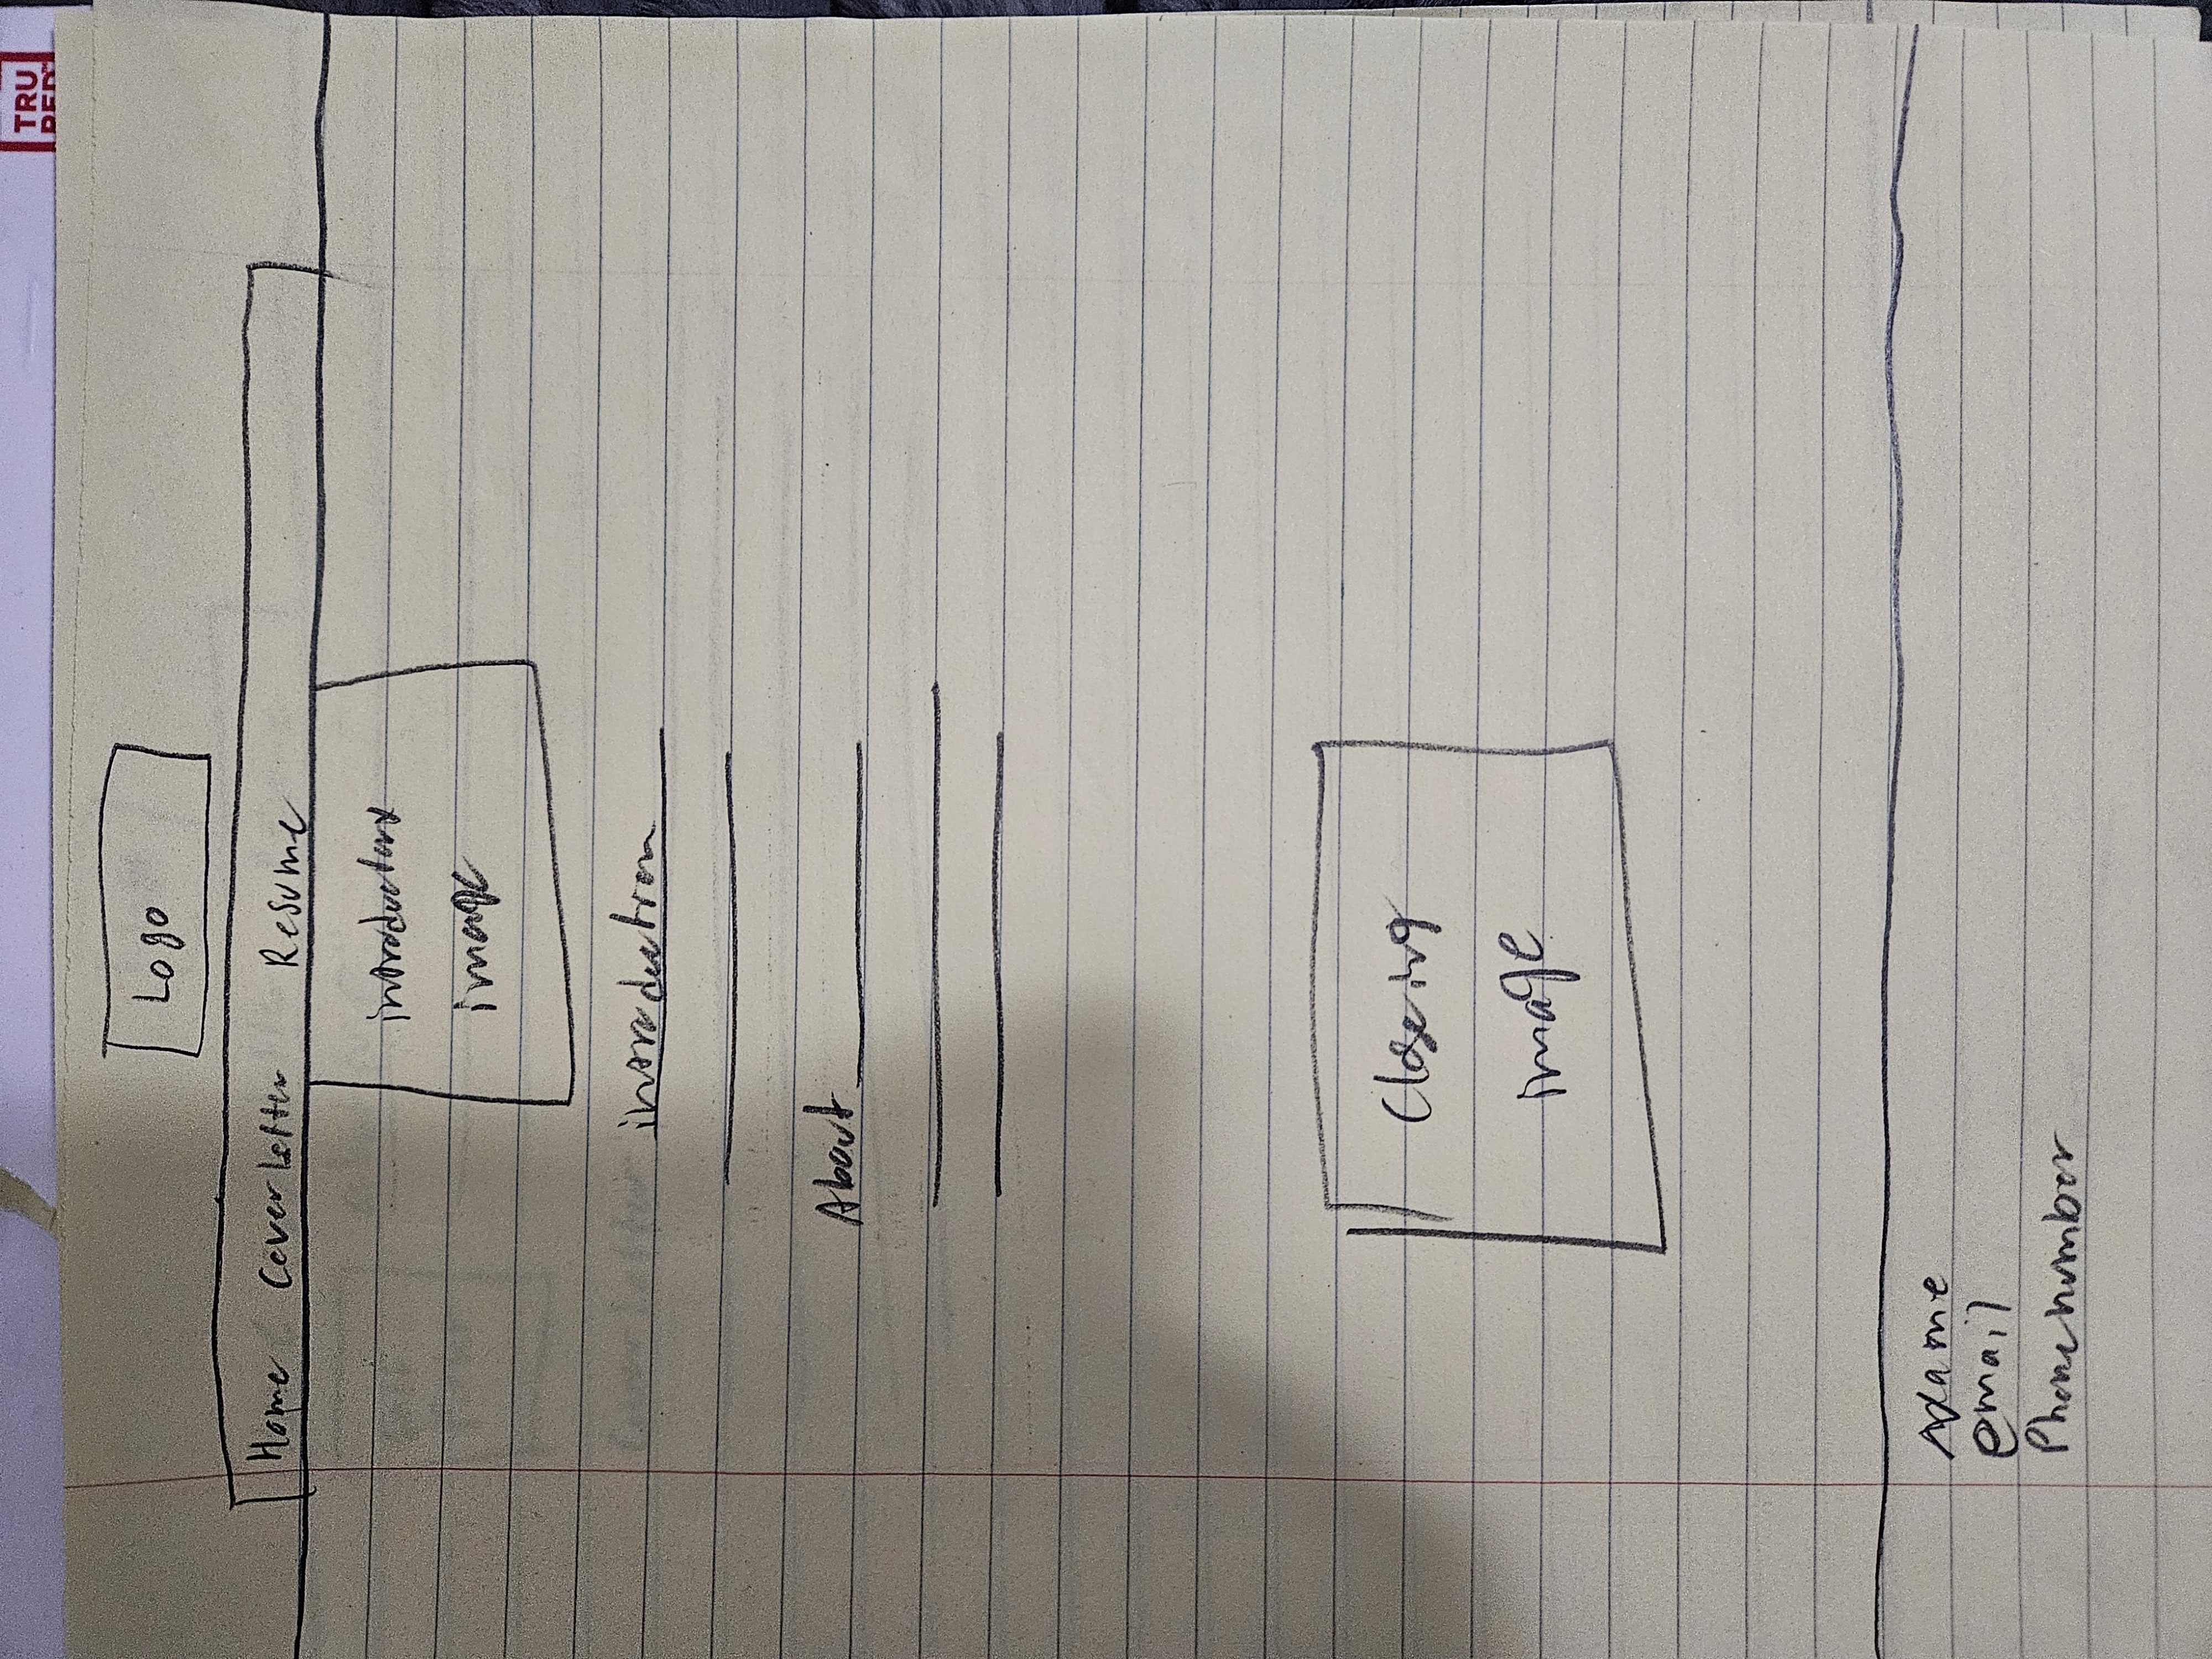 TRU
RED™
Logo
Home Cover Letter Resume
introductory
image
introduction
About
Closeing
image
Name
email
Phone number